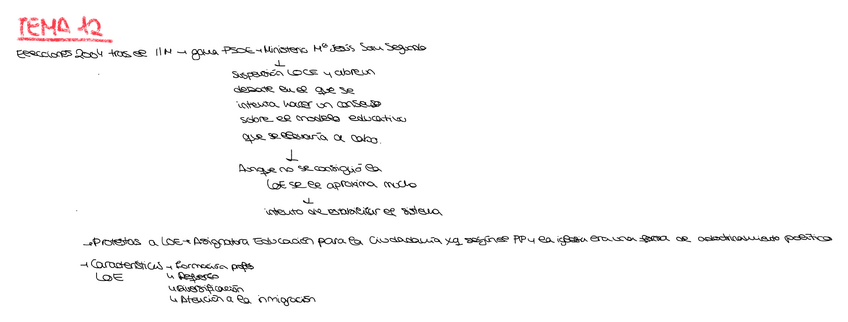 TEMA 12
Elecciones 2004 tras el 11M → gana PSOE → Ministerio Mª Jesús San Segundo
↓
Suspensión LOCE y abren
debate en el que se
intenta hacer un consenso
sobre el modelo educativo
que se llevaría a cabo.
↓
Aunque no se consiguió la
LOE se le aproxima mucho
↓
intento de estabilizar el sistema
→ Protestas a LOE → Asignatura Educación para la Ciudadanía xq según el PP y la iglesia era una forma de adoctrinamiento político
→ Características → formación profes
LOE ↳ Refuerzo
↳ Diversificación
↳ Atención a la inmigración